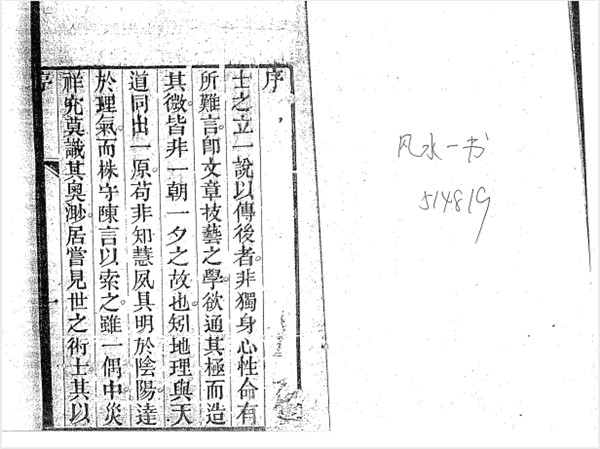 序
士之立一說以傳後者。非獨身心性命有
所難言。卽文章技藝之學。欲通其極而造
其微。皆非一朝一夕之故也。矧地理與天
道同出一原。苟非知慧夙具。明於陰陽。達
於理氣。而株守陳言以索之。雖一偶中。災
祥究莫識其奧。渺居嘗見世之術士。其以
序
一
风水一书
514819